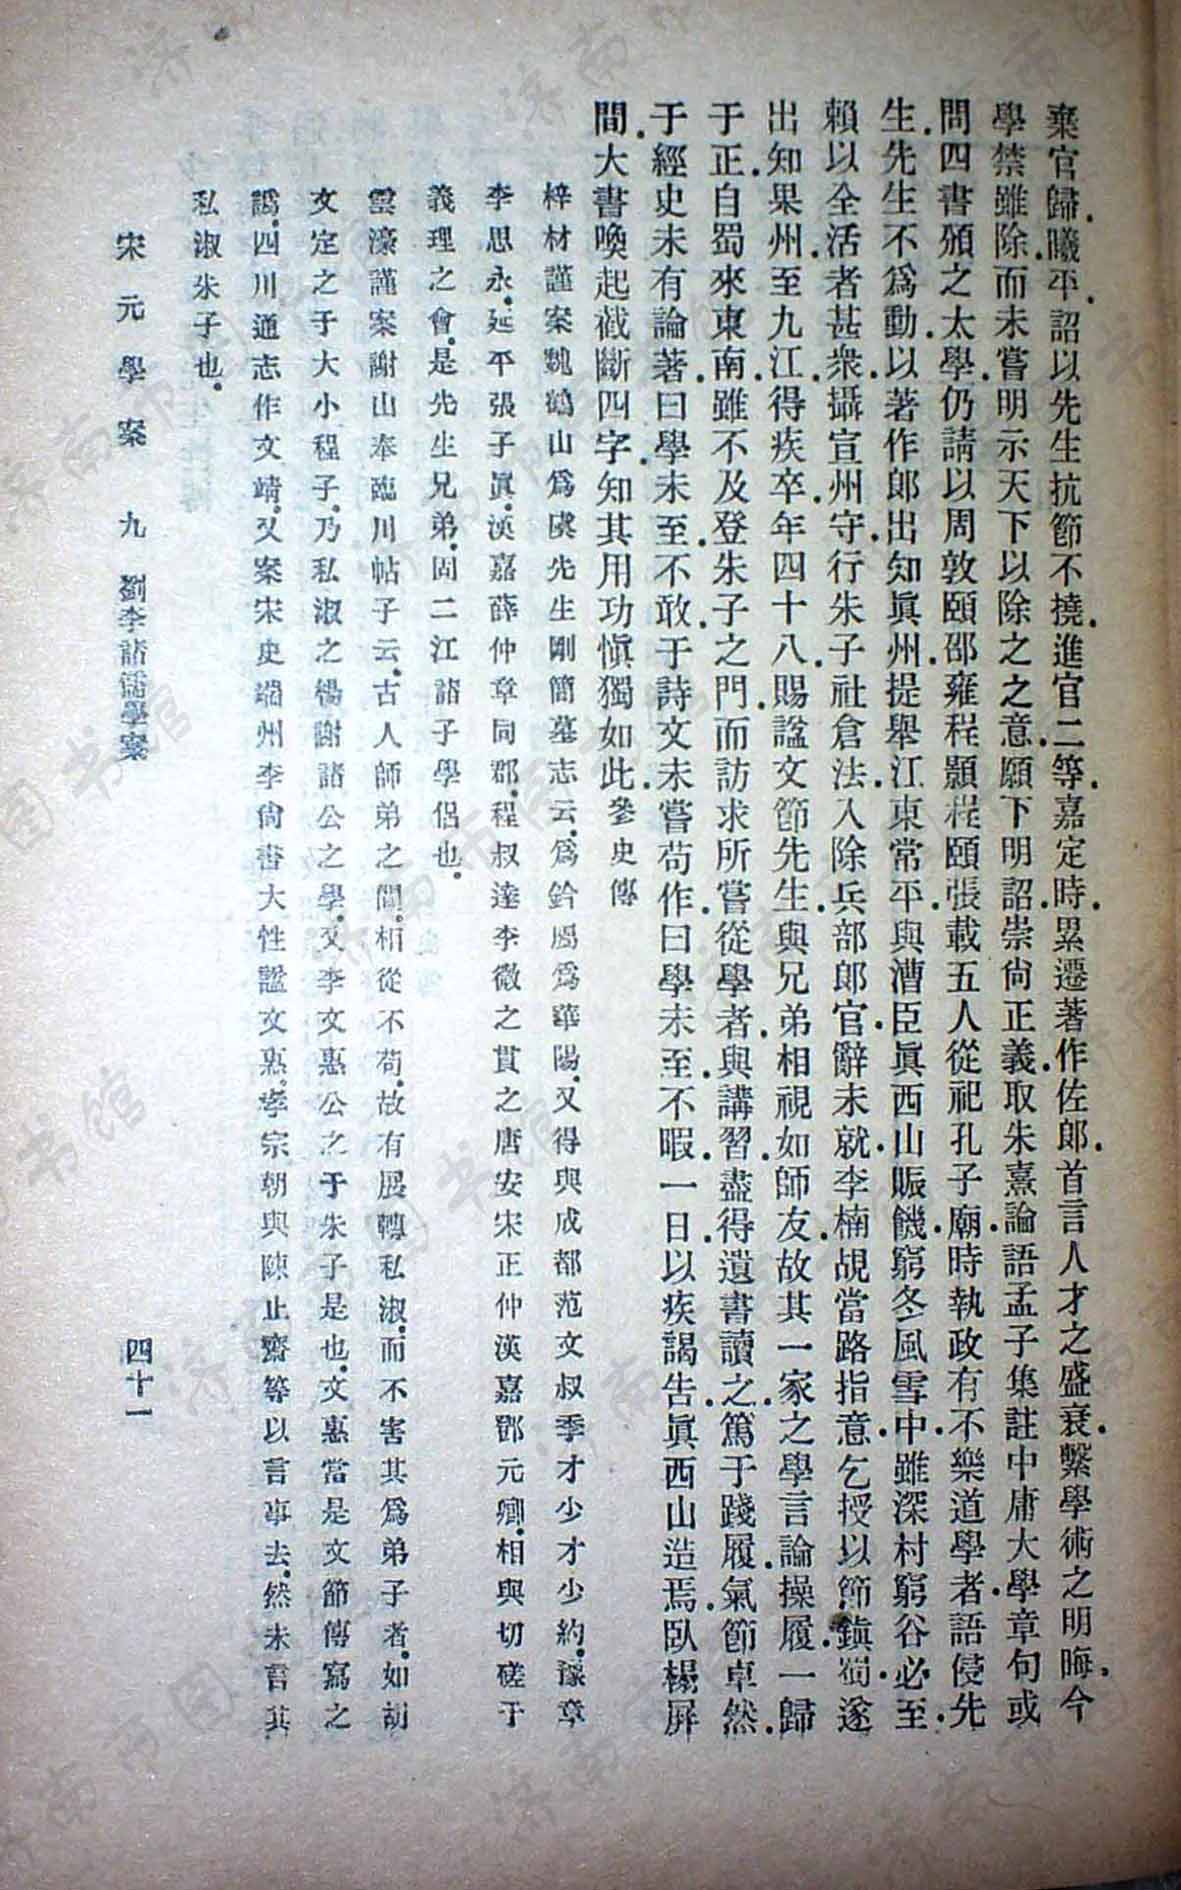 棄官歸.曦平.詔以先生抗節不撓.進官二等.嘉定時.累遷著作佐郎.首言人才之盛衰.繫學術之明晦.今
學禁雖除.而未嘗明示天下以除之之意.願下明詔.崇尚正義.取朱熹論語孟子集註中庸大學章句或
問四書.頒之太學.仍請以周敦頤邵雍程顥程頤張載五人從祀孔子廟.時執政有不樂道學者.語侵先
生.先生不爲動.以著作郎出知眞州.提舉江東常平.與漕臣眞西山賑饑.窮冬風雪中.雖深村窮谷必至.
賴以全活者甚衆.攝宣州守.行朱子社倉法.入除兵部郎官.辭未就.李楠覘當路指意.乞授以節.鎭蜀.遂
出知果州.至九江.得疾卒.年四十八.賜諡文節.先生與兄弟相視如師友.故其一家之學.言論操履.一歸
于正.自蜀來東南.雖不及登朱子之門.而訪求所嘗從學者.與講習.盡得遺書讀之.篤于踐履.氣節卓然.
于經史未有論著.曰學未至.不敢.于詩文未嘗苟作.曰學未至.不暇.一日以疾謁告.眞西山造焉.臥榻屏
間.大書喚起截斷四字.知其用功愼獨如此.參史傳
梓材謹案魏鶴山爲虞先生剛簡墓志云.爲鈐屬爲華陽.又得與成都范文叔季才少才少約.豫章
李思永.延平張子眞.漢嘉薛仲章同郡.程叔達李微之貫之唐安宋正仲漢嘉鄧元卿.相與切磋于
義理之會.是先生兄弟.固二江諸子學侶也.
雲濠謹案謝山奉臨川帖子云.古人師弟之間.相從不苟.故有展轉私淑.而不害其爲弟子者.如胡
文定之于大小程子.乃私淑之楊謝諸公之學.又李文惠公之于朱子是也.文惠當是文節傳寫之
譌.四川通志作文靖.又案宋史端州李尙書大性諡文惠.孝宗朝與陳止齋等以言事去.然未言其
私淑朱子也.
宋元學案 九 劉李諸儒學案 四十一